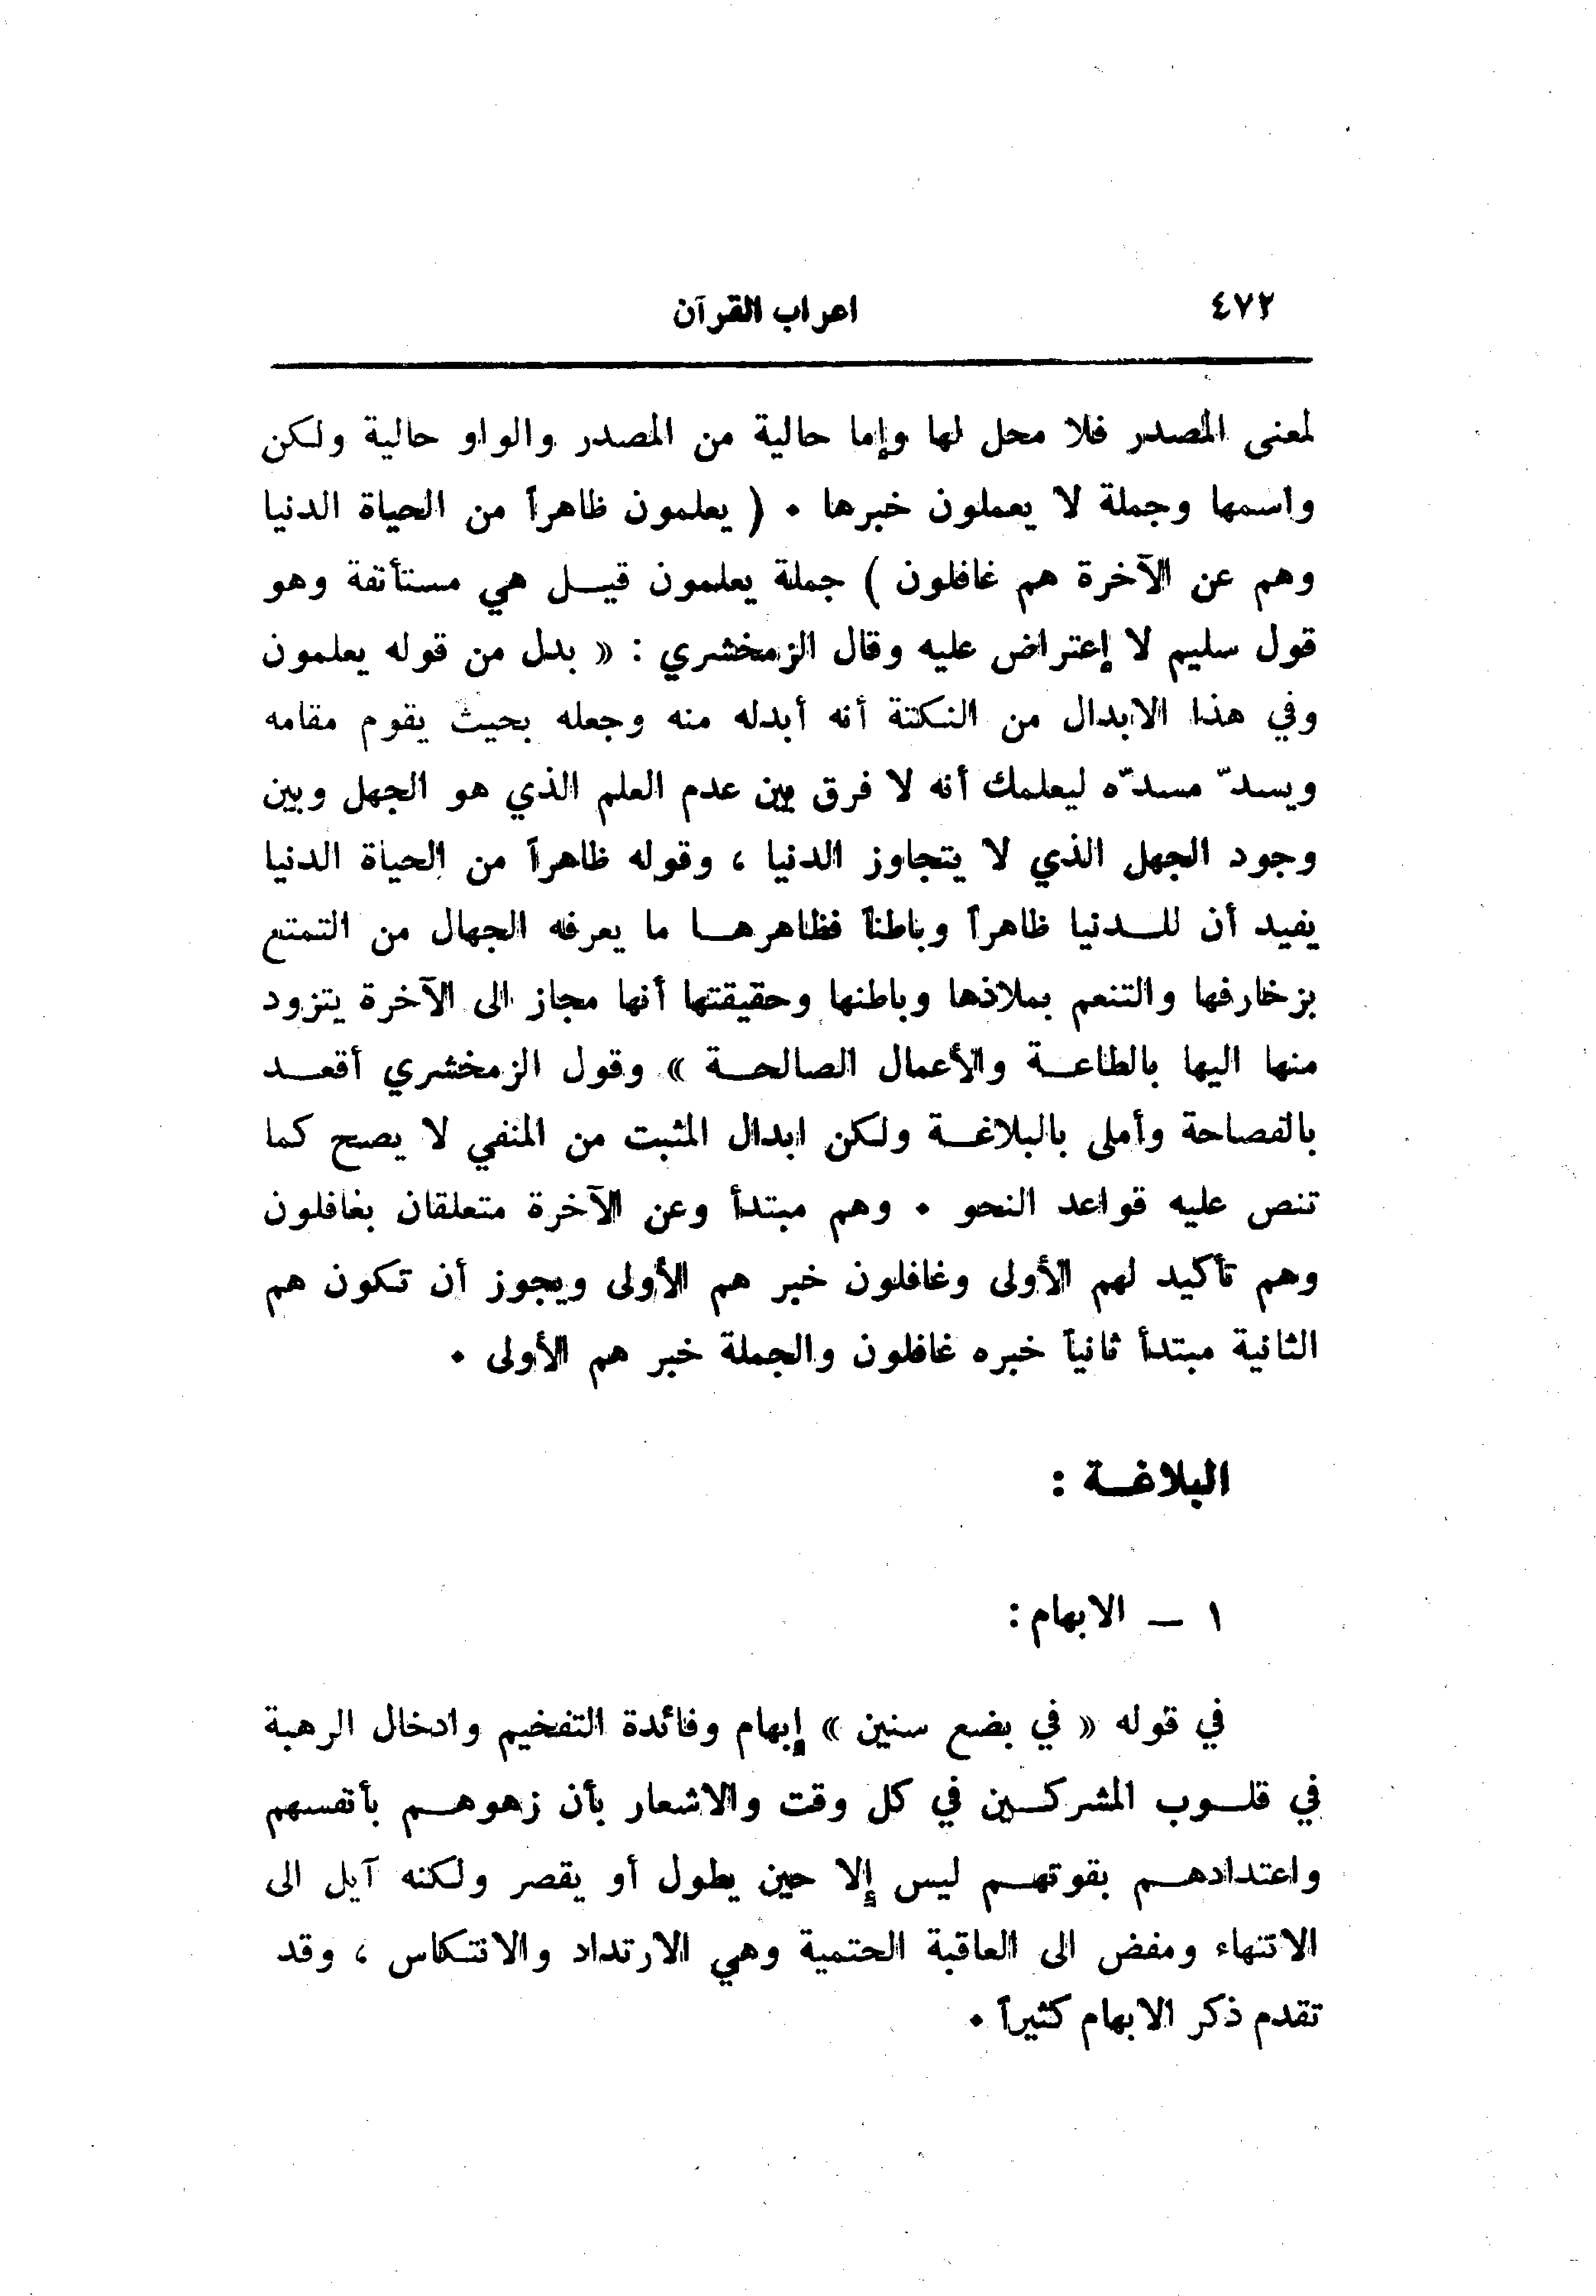 ٤٧٢ اعراب القرآن
لمعنى المصدر فلا محل لها وإما حالية من المصدر والواو حالية ولكن
واسمها وجملة لا يعملون خبرها • ( يعلمون ظاهراً من الحياة الدنيا
وهم عن الآخرة هم غافلون ) جملة يعلمون قيل هي مستأنفة وهو
قول سليم لا إعتراض عليه وقال الزمخشري : « بدل من قوله يعلمون
وفي هذا الابدال من النكتة أنه أبدله منه وجعله بحيث يقوم مقامه
ويسدّ مسدّه ليعلمك أنه لا فرق بين عدم العلم الذي هو الجهل وبين
وجود الجهل الذي لا يتجاوز الدنيا ، وقوله ظاهراً من الحياة الدنيا
يفيد أن للدنيا ظاهراً وباطناً فظاهرها ما يعرفه الجهال من التمتع
بزخارفها والتنعم بملاذها وباطنها وحقيقتها أنها مجاز الى الآخرة يتزود
منها اليها بالطاعة والأعمال الصالحة » وقول الزمخشري أقعد
بالفصاحة وأملى بالبلاغة ولكن ابدال المثبت من المنفي لا يصح كما
تنص عليه قواعد النحو • وهم مبتدأ وعن الآخرة متعلقان بغافلون
وهم تأكيد لهم الأولى وغافلون خبر هم الأولى ويجوز أن تكون هم
الثانية مبتدأ ثانياً خبره غافلون والجملة خبر هم الأولى •
البلاغة :
١ – الابهام :
في قوله « في بضع سنين » إبهام وفائدة التفخيم وادخال الرهبة
في قلوب المشركين في كل وقت والاشعار بأن زهوهم بأنفسهم
واعتدادهم بقوتهم ليس إلا حين يطول أو يقصر ولكنه آيل الى
الانتهاء ومفض الى العاقبة الحتمية وهي الارتداد والانتكاس ، وقد
تقدم ذكر الابهام كثيراً •